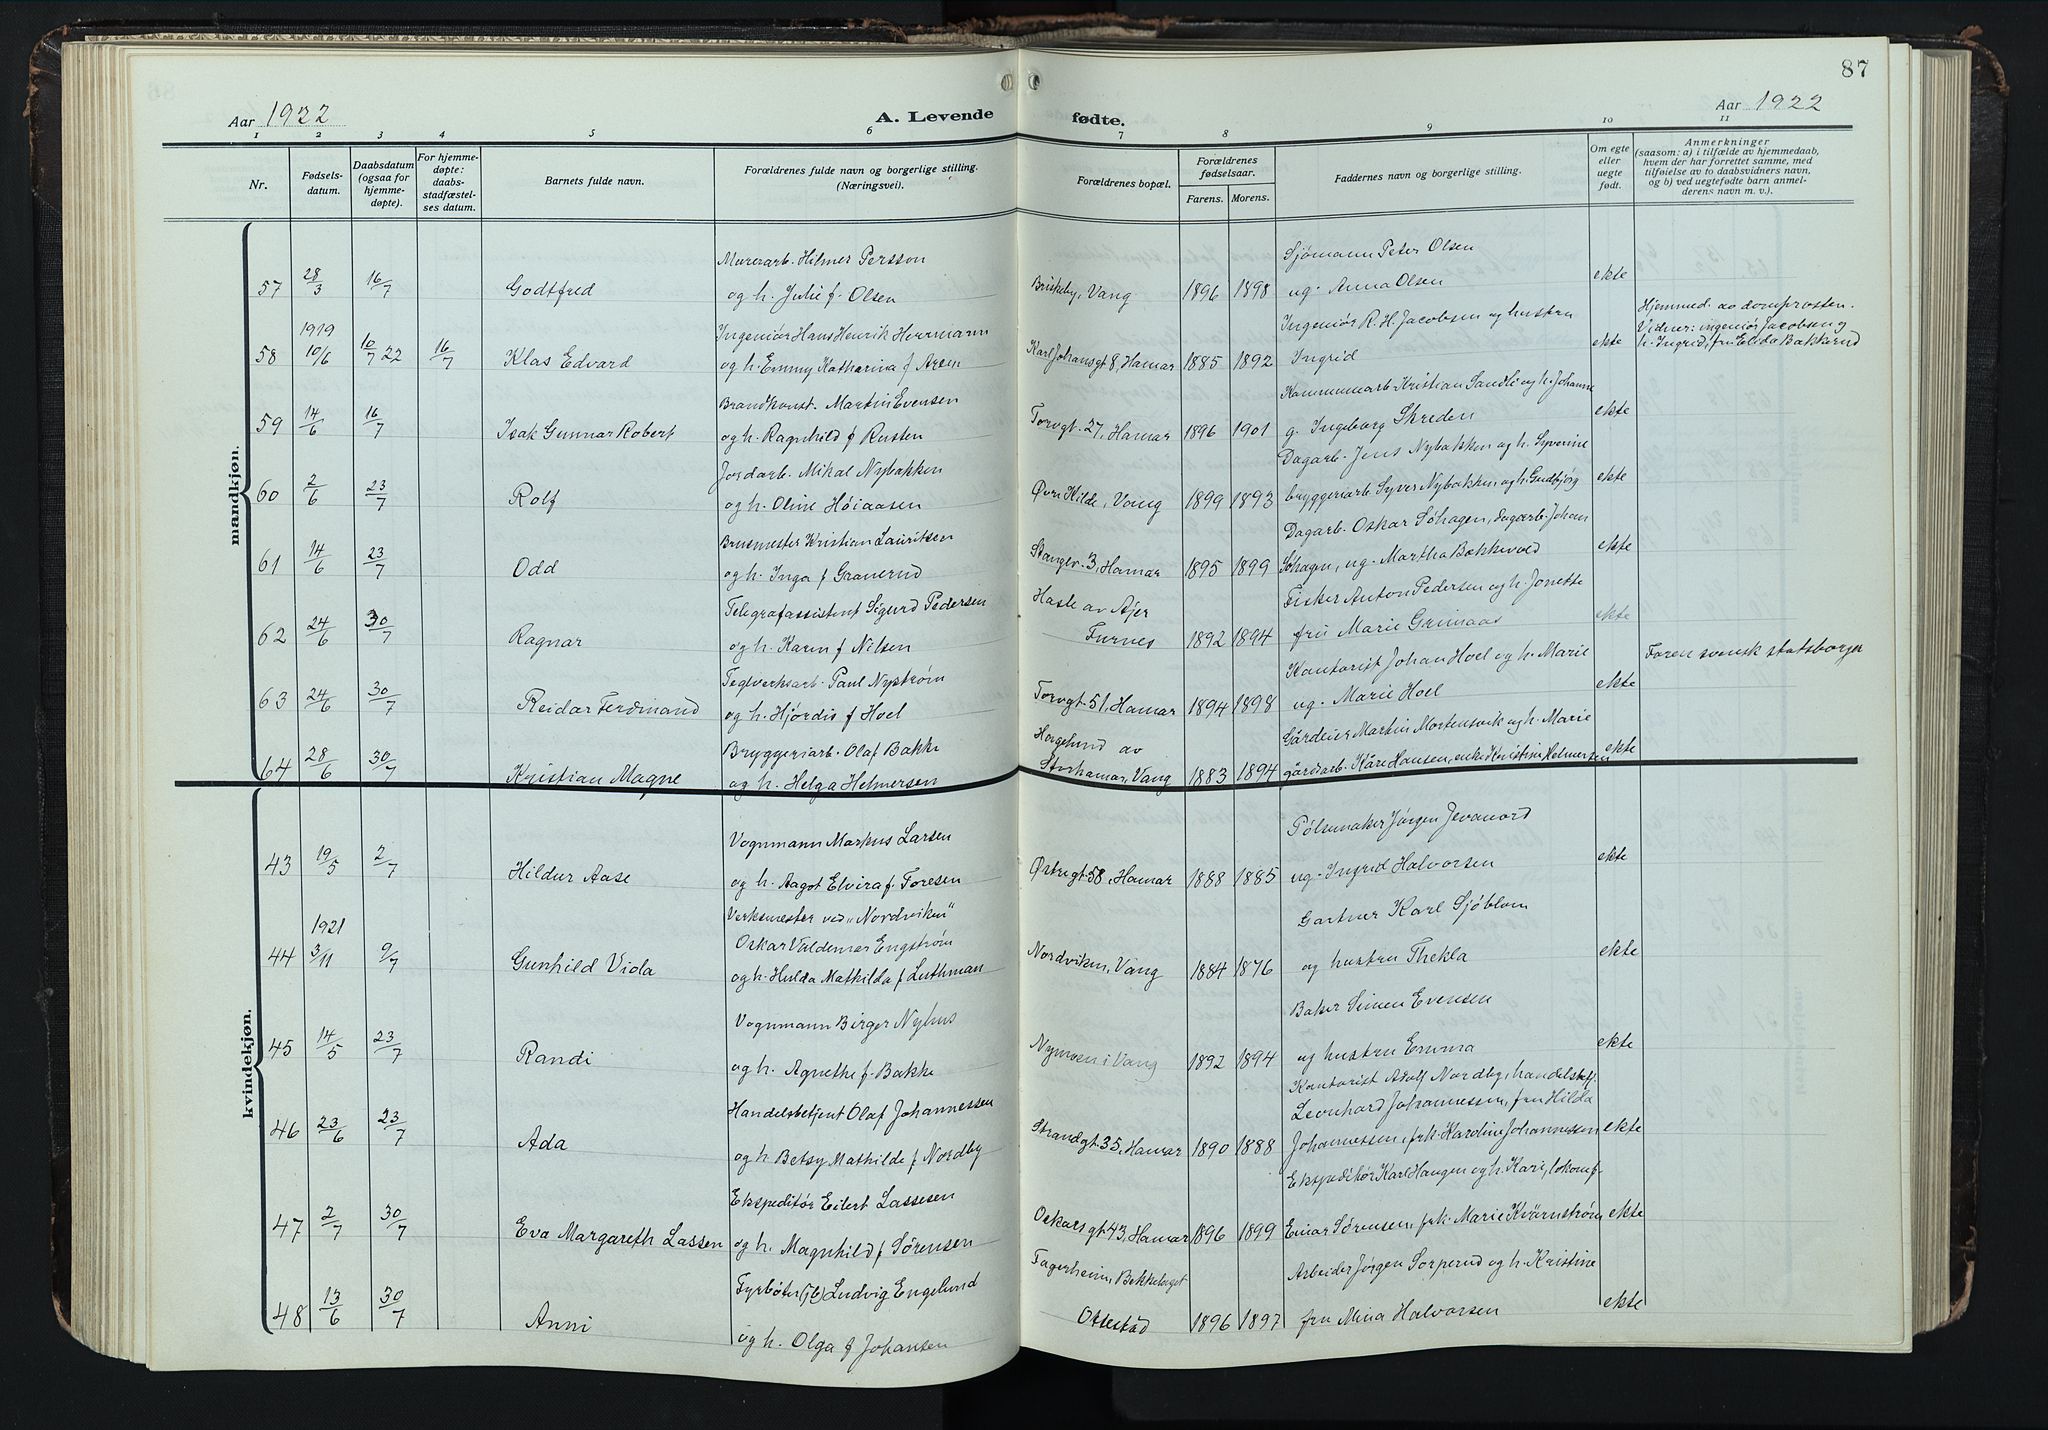 87
Aar 1922
A. Levende
fødte.
Aar 1922
1 2 3 4 5 6 7 8 9 10 11
Nr.
Fødsels-
datum.
Daabsdatum
(ogsaa for
hjemme-
døpte).
For hjemme-
døpte:
daabs-
stadfæstel-
ses datum.
Barnets fulde navn.
Forældrenes fulde navn og borgerlige stilling.
(Næringsvei).
Forældrenes bopæl.
Forældrenes
fødselsaar.
Farens. Morens.
Faddernes navn og borgerlige stilling.
Om egte
eller
uegte
født.
Anmerkninger
(saasom: a) i tilfælde av hjemmedaab,
hvem der har forrettet samme, med
tilføielse av to daabsvidners navn,
og b) ved uegtefødte barn anmel-
derens navn m. v.).
mandkjøn.
Murerarb. Hilmer Persson
Sjømann Peter Olsen
57 28/3 16/7 Godtfred og h. Julie f. Olsen Briskeby, Vang 1896 1898 ug. Anna Olsen ekte
1919
Ingeniør Hans Henrik Herrmann
Ingeniør R. H. Jacobsen og hustru
Hjemmed. av domprosten.
Vidner: ingeniør Jacobsen og
58 10/6 10/7 22 16/7 Klas Edvard og h. Emmy Katharina f. Karl Johansgt 8, Hamar 1885 1892 Ingrid ekte h. Ingrid, fru Elida Bakkerud
Brandkonst. Martin Evensen
Kommunearb. Kristian Sandli og h. Johanne
59 14/6 16/7 Isak Gunnar Robert og h. Ragnhild f Rusten Torvgt. 27, Hamar 1896 1901 g. Ingeborg Skreden ekte
Jordarb. Mikal Nybakken
Dagarb. Jens Nybakken og h. Syverine
60 2/6 23/7 Rolf og h. Oline Høiaasen Øvre Kilde, Vang 1899 1893 bryggeriarb Syver Nybakken og h. Gudbjørg ekte
Brusmester Kristian Lauritsen
Dagarb. Oskar Søhagen, dagarb. Johan
61 14/6 23/7 Odd og h. Inga f Granerud Stangev. 3, Hamar 1895 1899 Søhagen, ug. Martha Bækkevold ekte
Telegrafassistent Sigurd Pedersen
Hasle av Ajer
Fisker Anton Pedersen og h. Jonette
62 24/6 30/7 Ragnar og h. Karen f Nilsen Furnes 1892 1894 fru Marie Grimaas ekte
Teglverksarb. Paul Nystrøm
Kontorist Johan Hoel og h. Marie
Faren svensk statsborger
63 24/6 30/7 Reidar Ferdinand og h. Hjørdis f Hoel Torvgt. 51, Hamar 1894 1898 ug. Marie Hoel ekte
Bryggeriarb. Olaf Bakke
Hagelund av
Gårdeier Martin Mortensvik og h. Marie
64 28/6 30/7 Kristian Magne og h. Helga Helmersen Storhamar, Vang 1883 1894 gårdarb. Kåre Hansen, enke Kristine Helmersen ekte
kvindekjøn.
Vognmann Markus Larsen
Pølsemaker Jørgen Jevanord
43 19/5 2/7 Hildur Aase og h. Aagot Elvira f. Toresen Østregt. 58, Hamar 1888 1885 ug. Ingrid Halvorsen ekte
Verksmester ved „Nordviken"
1921
Oskar Valdemar Engstrøm
Gartner Karl Sjöblom
44 3/11 9/7 Gunhild Viola og h. Hulda Mathilda f Luthman Nordviken, Vang 1884 1876 og hustru Thekla ekte
Vognmann Birger Nyhus
Baker Simen Evensen
45 14/5 23/7 Randi og h. Agnethe f. Bakke Nymoen i Vang 1892 1894 og hustru Emma ekte
Handelsbetjent Olaf Johannessen
Kontorist Adolf Nordby, handelsbetj.
Leonhard Johannessen, fru Hilda
46 23/6 23/7 Ada og h. Betsy Mathilde f Nordby Strandgt. 35, Hamar 1890 1888 Johannessen, frk. Karoline Johannessen ekte
Ekspeditør Eilert Lassesen
Ekspeditør Karl Haugen og h. Kari, lokomf.
47 2/7 30/7 Eva Margareth Lassen og h. Magnhild f Sørensen Oskarsgt 43, Hamar 1896 1899 Einar Sørensen, frk. Marie Kvärnstrøm ekte
Fyrbøter (jb) Ludvig Engelund
Fagerheim, Bekkelaget
Arbeider Jørgen Sorperud og h. Kristine
48 13/6 30/7 Anni og h. Olga f Johansen Ottestad 1896 1897 fru Mina Halvorsen ekte